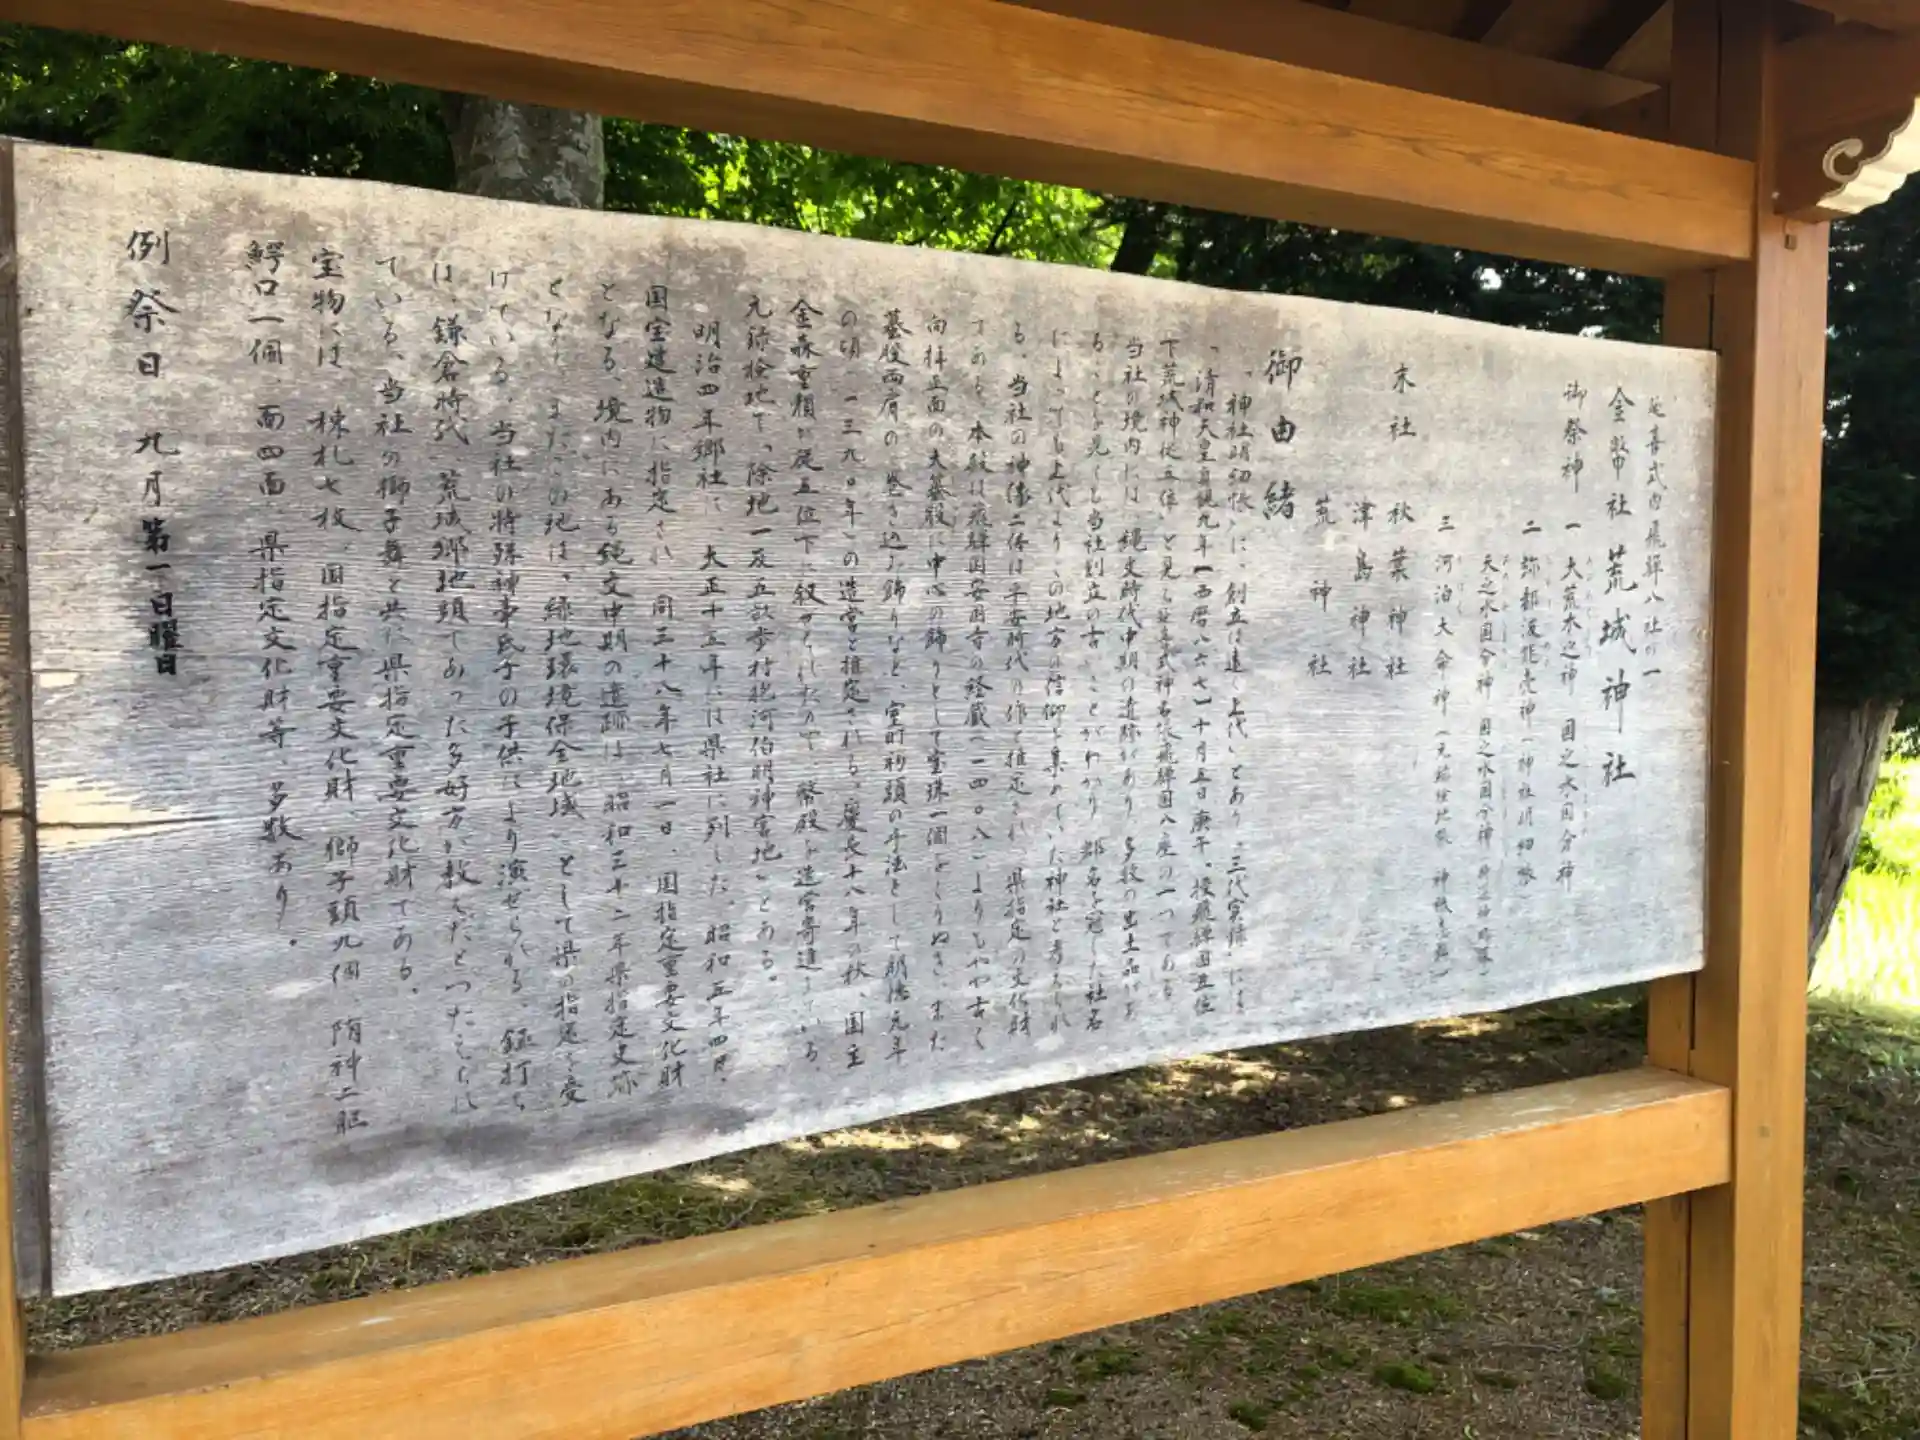 延喜式内飛騨八社の一
金幣社 荒城神社
御祭神 一 大荒木之神 国之水分神
二 弥都波能売神(神社明細帳)
天之水分神 国之水分神
三 河泊大命神(元禄検地帳 神祇
末社 秋葉神社
津島神社
荒神社
御由緒
「神社明細帳」に、創立は遠く上代」とあり、「三代実録」によ
「清和天皇貞観九年(西暦八六七)十月五日庚午、授飛騨国正位
下荒城神従五位」と見ら延喜式神名帳飛騨国八座の一つである
当社の境内には、縄文時代中期の遺跡があり、多数の出土品があ
ることを見ても当社創立の古いことがわかり、郡名を冠した社名
によっても上代よりこの地方の信仰を集めていた神社と考えられ
る、当社の神像二体は平安時代の作と推定され、県指定の文化財
である、本殿は飛騨国安国寺の経蔵(一四〇八)よりもやや古く
向拝正面の大蟇股に中心の飾りとして宝珠一個をくりぬき、また
蟇股両肩の巻き込み飾りなど、室町初頭の手法として明徳元年
の頃(一三九〇年)の造営と推定される、慶長十八年の秋、国主
金森重頼が従五位下に叙せられたので、幣殿を造営寄進している、
元録検地で「除地一反五畝歩村挩河伯明神宮地」とある。
明治四年郷社に、大正十五年には県社に列した、昭和五年四月、
国宝建造物に指定され、同三十八年七月一日、国指定重要文化財
となる、境内にある縄文中期の遺跡は、昭和三十二年県指定史跡
となり、またこの地は、「緑地環境保全地域」として県の指定を受
けている、当社の特殊神事氏子の子供により演ぜられる、鉦打ち
は、鎌倉時代、荒城郷地頭であった多好方が教えたとつたえられ
ている、当社の獅子舞と共に県指定重要文化財である。
宝物には 棟札七枚、国指定重要文化財、獅子頭九個、隋神二躯
鰐口一個、面四面、県指定文化財等、多数あり。
例祭日 九月第一日曜日